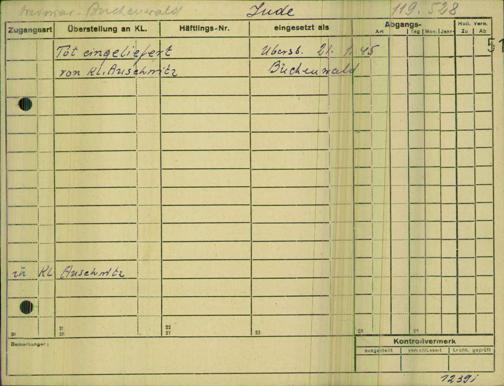 Weimar-Buchenwald Jude 119.528
Zugangsart Überstellung an KL. Häftlings-Nr. eingesetzt als Abgangs- Holl. Verm.
Art Tag Mon. Jahr Zu Ab
51
Tot eingeliefert Überst. 21. 1. 45
von Kl. Auschwitz Buchenwald
in KL Auschwitz
Bemerkungen:
Kontrollvermerk
ausgestellt verschlüsselt Lochk. geprüft